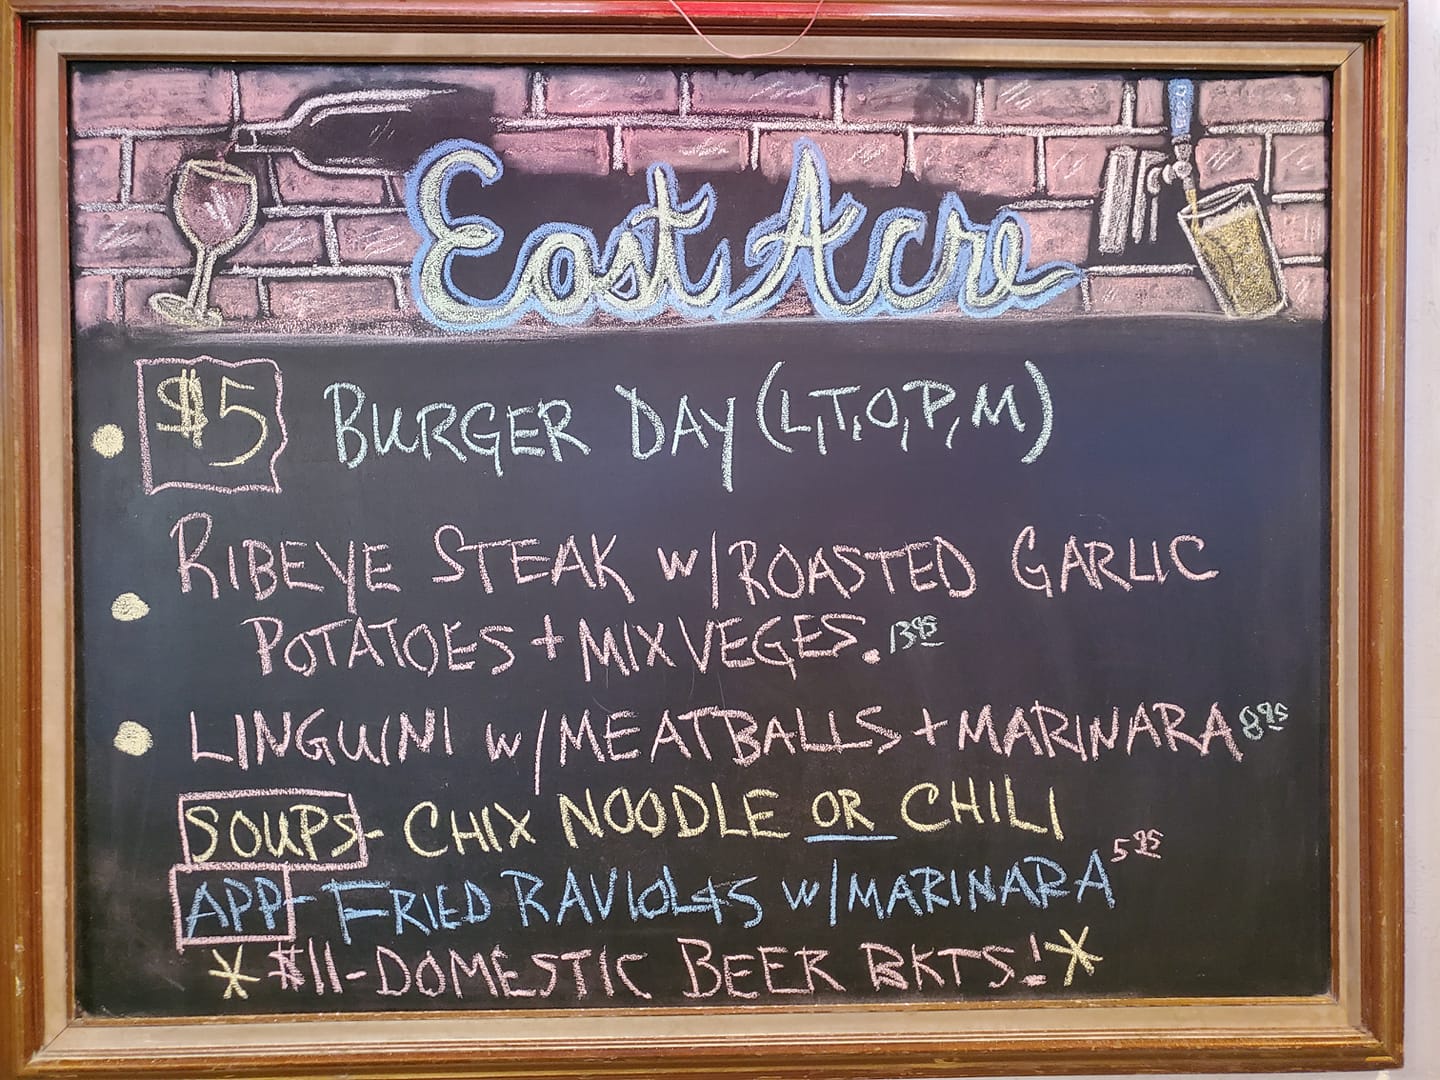 East Acre
$5 BURGER DAY (L,T,O,P,M)
RIBEYE STEAK w/ROASTED GARLIC
POTATOES + MIX VEGES. 13.95
LINGUINI w/MEATBALLS + MARINARA 8.95
SOUPS- CHIX NOODLE OR CHILI
APP- FRIED RAVIOLIS w/MARINARA 5.95
*$11-DOMESTIC BEER BKTS!*